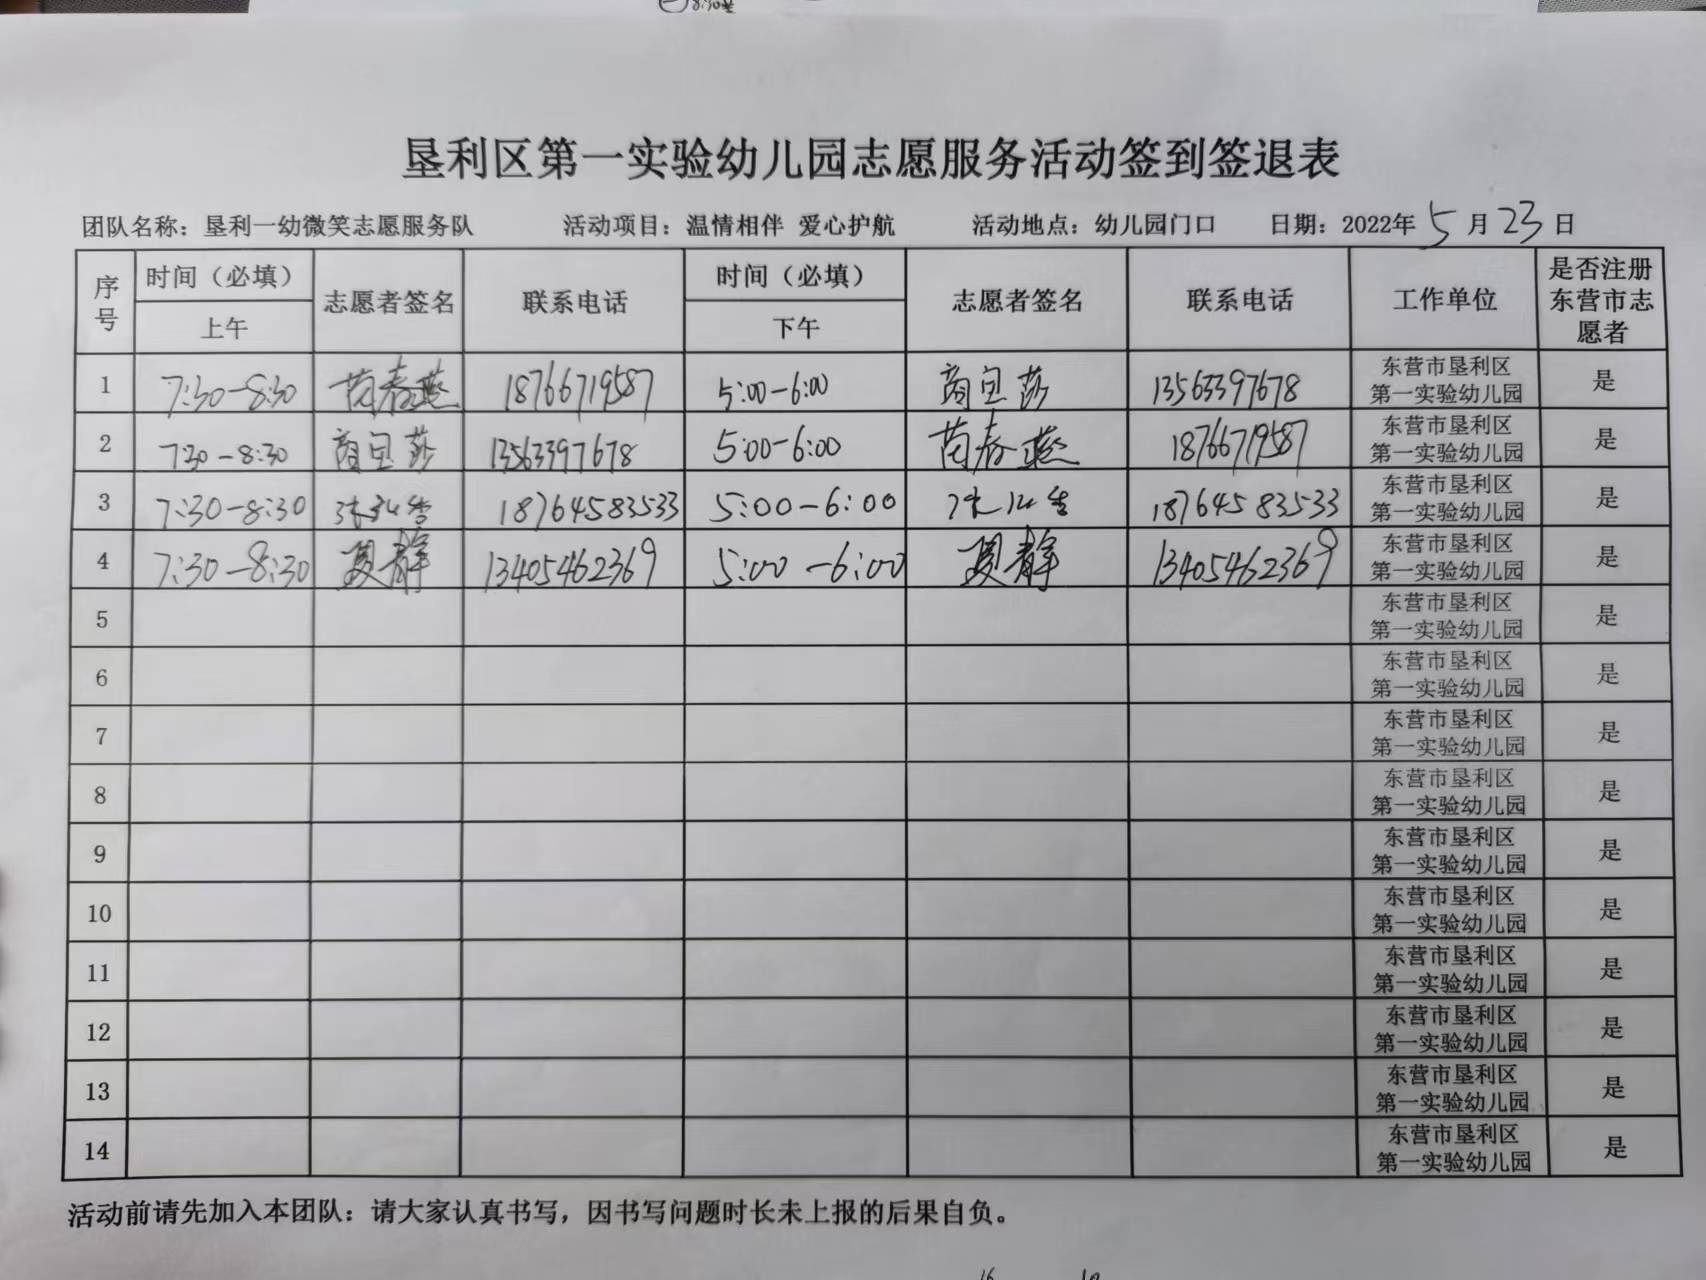 垦利区第一实验幼儿园志愿服务活动签到签退表
团队名称：垦利一幼微笑志愿服务队 活动项目：温情相伴 爱心护航 活动地点：幼儿园门口 日期：2022年5月23日
序号 时间（必填） 上午 志愿者签名 联系电话 时间（必填） 下午 志愿者签名 联系电话 工作单位 是否注册东营市志愿者
1 7:30-8:30 苘春燕 18766719587 5:00-6:00 商宝莎 13563397678 东营市垦利区第一实验幼儿园 是
2 7:30-8:30 商宝莎 13563397678 5:00-6:00 苘春燕 18766719587 东营市垦利区第一实验幼儿园 是
3 7:30-8:30 18764583533 5:00-6:00 18764583533 东营市垦利区第一实验幼儿园 是
4 7:30-8:30 夏静 13405462369 5:00-6:00 夏静 13405462369 东营市垦利区第一实验幼儿园 是
5 东营市垦利区第一实验幼儿园 是
6 东营市垦利区第一实验幼儿园 是
7 东营市垦利区第一实验幼儿园 是
8 东营市垦利区第一实验幼儿园 是
9 东营市垦利区第一实验幼儿园 是
10 东营市垦利区第一实验幼儿园 是
11 东营市垦利区第一实验幼儿园 是
12 东营市垦利区第一实验幼儿园 是
13 东营市垦利区第一实验幼儿园 是
14 东营市垦利区第一实验幼儿园 是
活动前请先加入本团队：请大家认真书写，因书写问题时长未上报的后果自负。